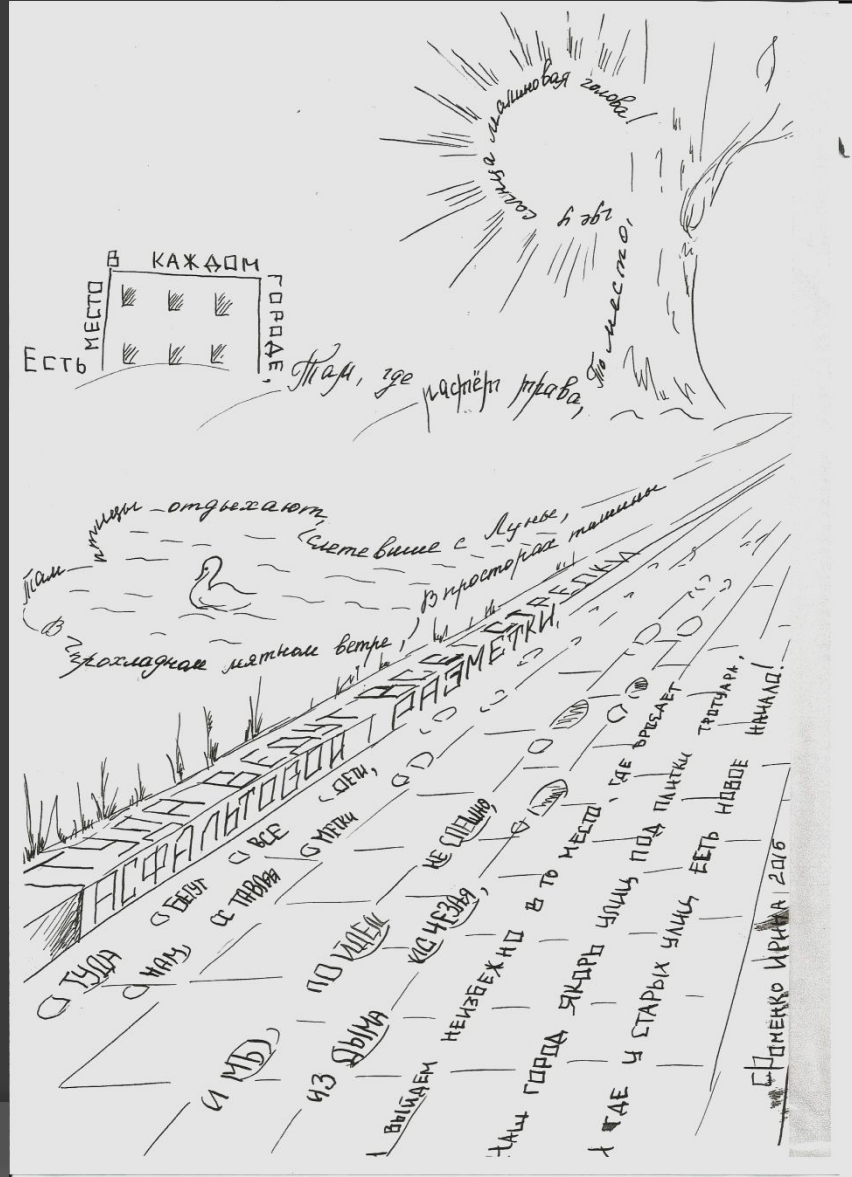 Есть место в каждом городе,
Там, где растёт трава,
То место,
где у солнца малиновая голова!
Там птицы отдыхают,
слетевшие с Луны,
В прохладном мятном ветре,
В просторах тишины
Туда ведут все стрелки
Асфальтовой разметки.
Туда бегут все дети,
Нам оставляя метки
И мы, пойдем неспешно,
Из дыма исчезая,
И выйдем неизбежно в то место, где бросает
Наш город якорь улиц под плитки тротуара,
И где у старых улиц есть новое начало!
Фоменко Ирина 2015